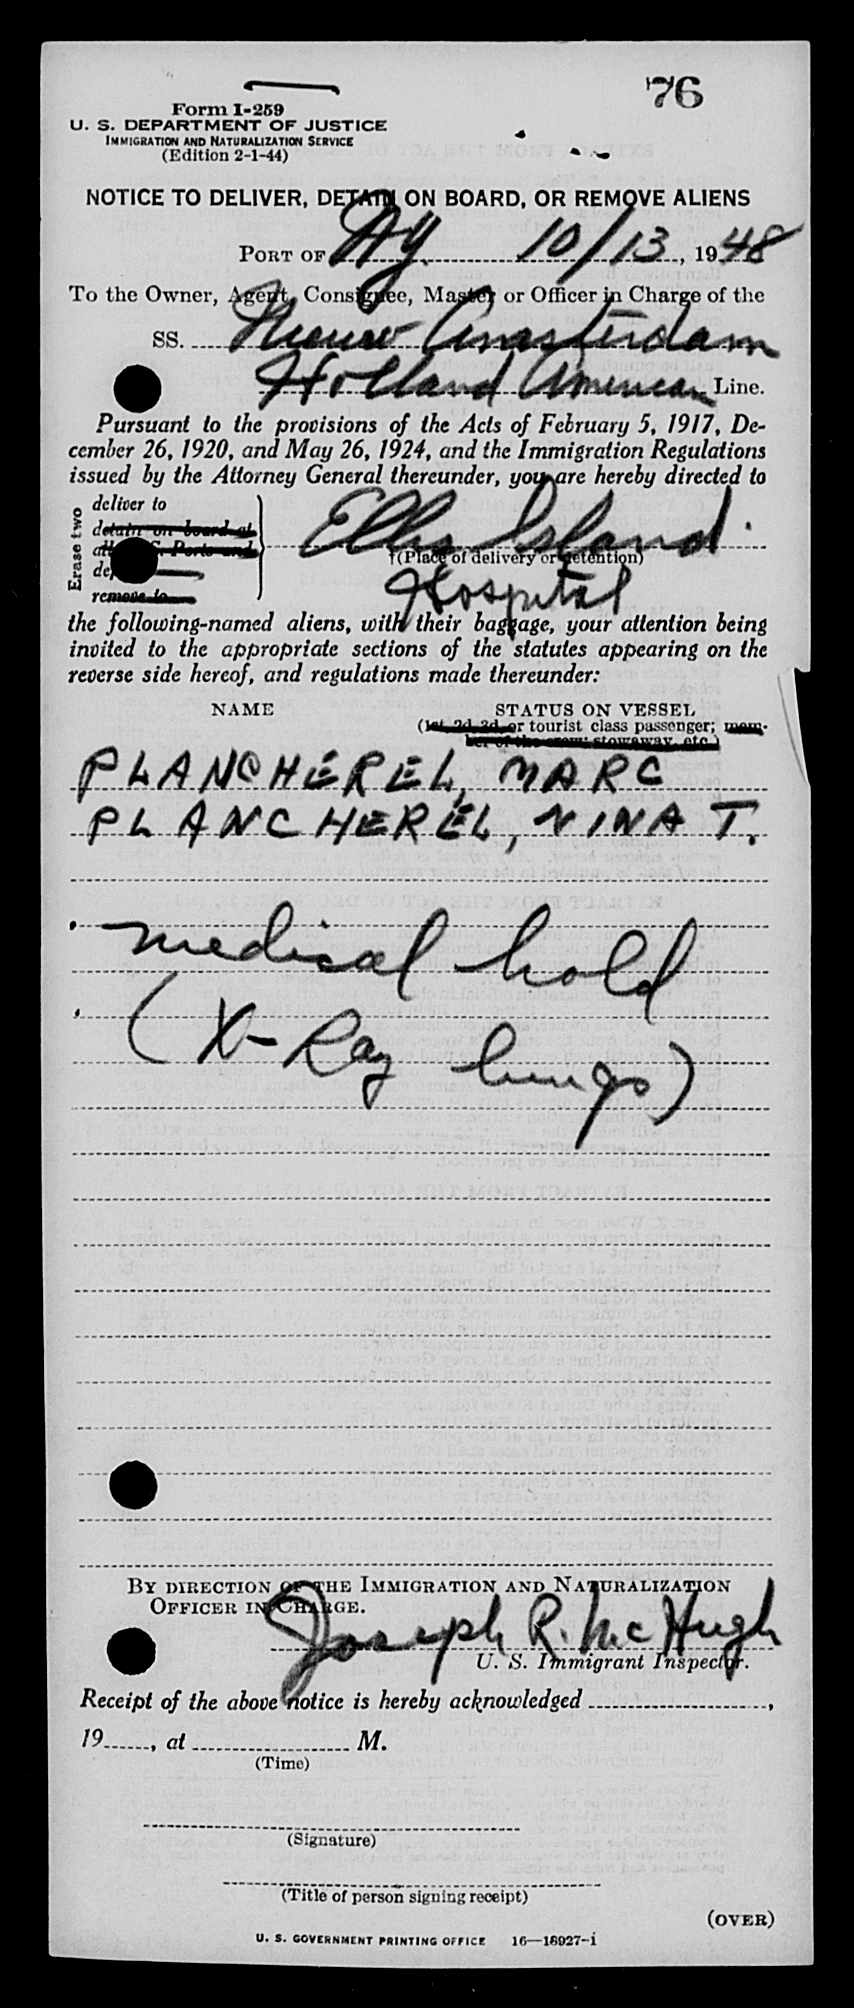 76
Form I-259
U. S. DEPARTMENT OF JUSTICE
IMMIGRATION AND NATURALIZATION SERVICE
(Edition 2-1-44)
NOTICE TO DELIVER, DETAIN ON BOARD, OR REMOVE ALIENS
PORT OF NY. 10/13, 1948
To the Owner, Agent, Consignee, Master or Officer in Charge of the
SS. Nieuw Amsterdam
Holland American Line.
Pursuant to the provisions of the Acts of February 5, 1917, De-
cember 26, 1920, and May 26, 1924, and the Immigration Regulations
issued by the Attorney General thereunder, you are hereby directed to
Erase two
deliver to
detain on board at
S. Ports and
remove to
Ellis Island
†(Place of delivery or detention)
Hospital
the following-named aliens, with their baggage, your attention being
invited to the appropriate sections of the statutes appearing on the
reverse side hereof, and regulations made thereunder:
NAME STATUS ON VESSEL
(1st, 2d, 3d, or tourist class passenger; mem-
ber of the crew; stowaway, etc.)
PLANCHEREL, MARC
PLANCHEREL, NINA T.
medical hold
(X-Ray lungs)
BY DIRECTION OF THE IMMIGRATION AND NATURALIZATION
OFFICER IN CHARGE.
Joseph R. McHugh
U. S. Immigrant Inspector.
Receipt of the above notice is hereby acknowledged ,
19 , at M.
(Time)
(Signature)
(Title of person signing receipt)
(OVER)
U. S. GOVERNMENT PRINTING OFFICE 16—18927-1